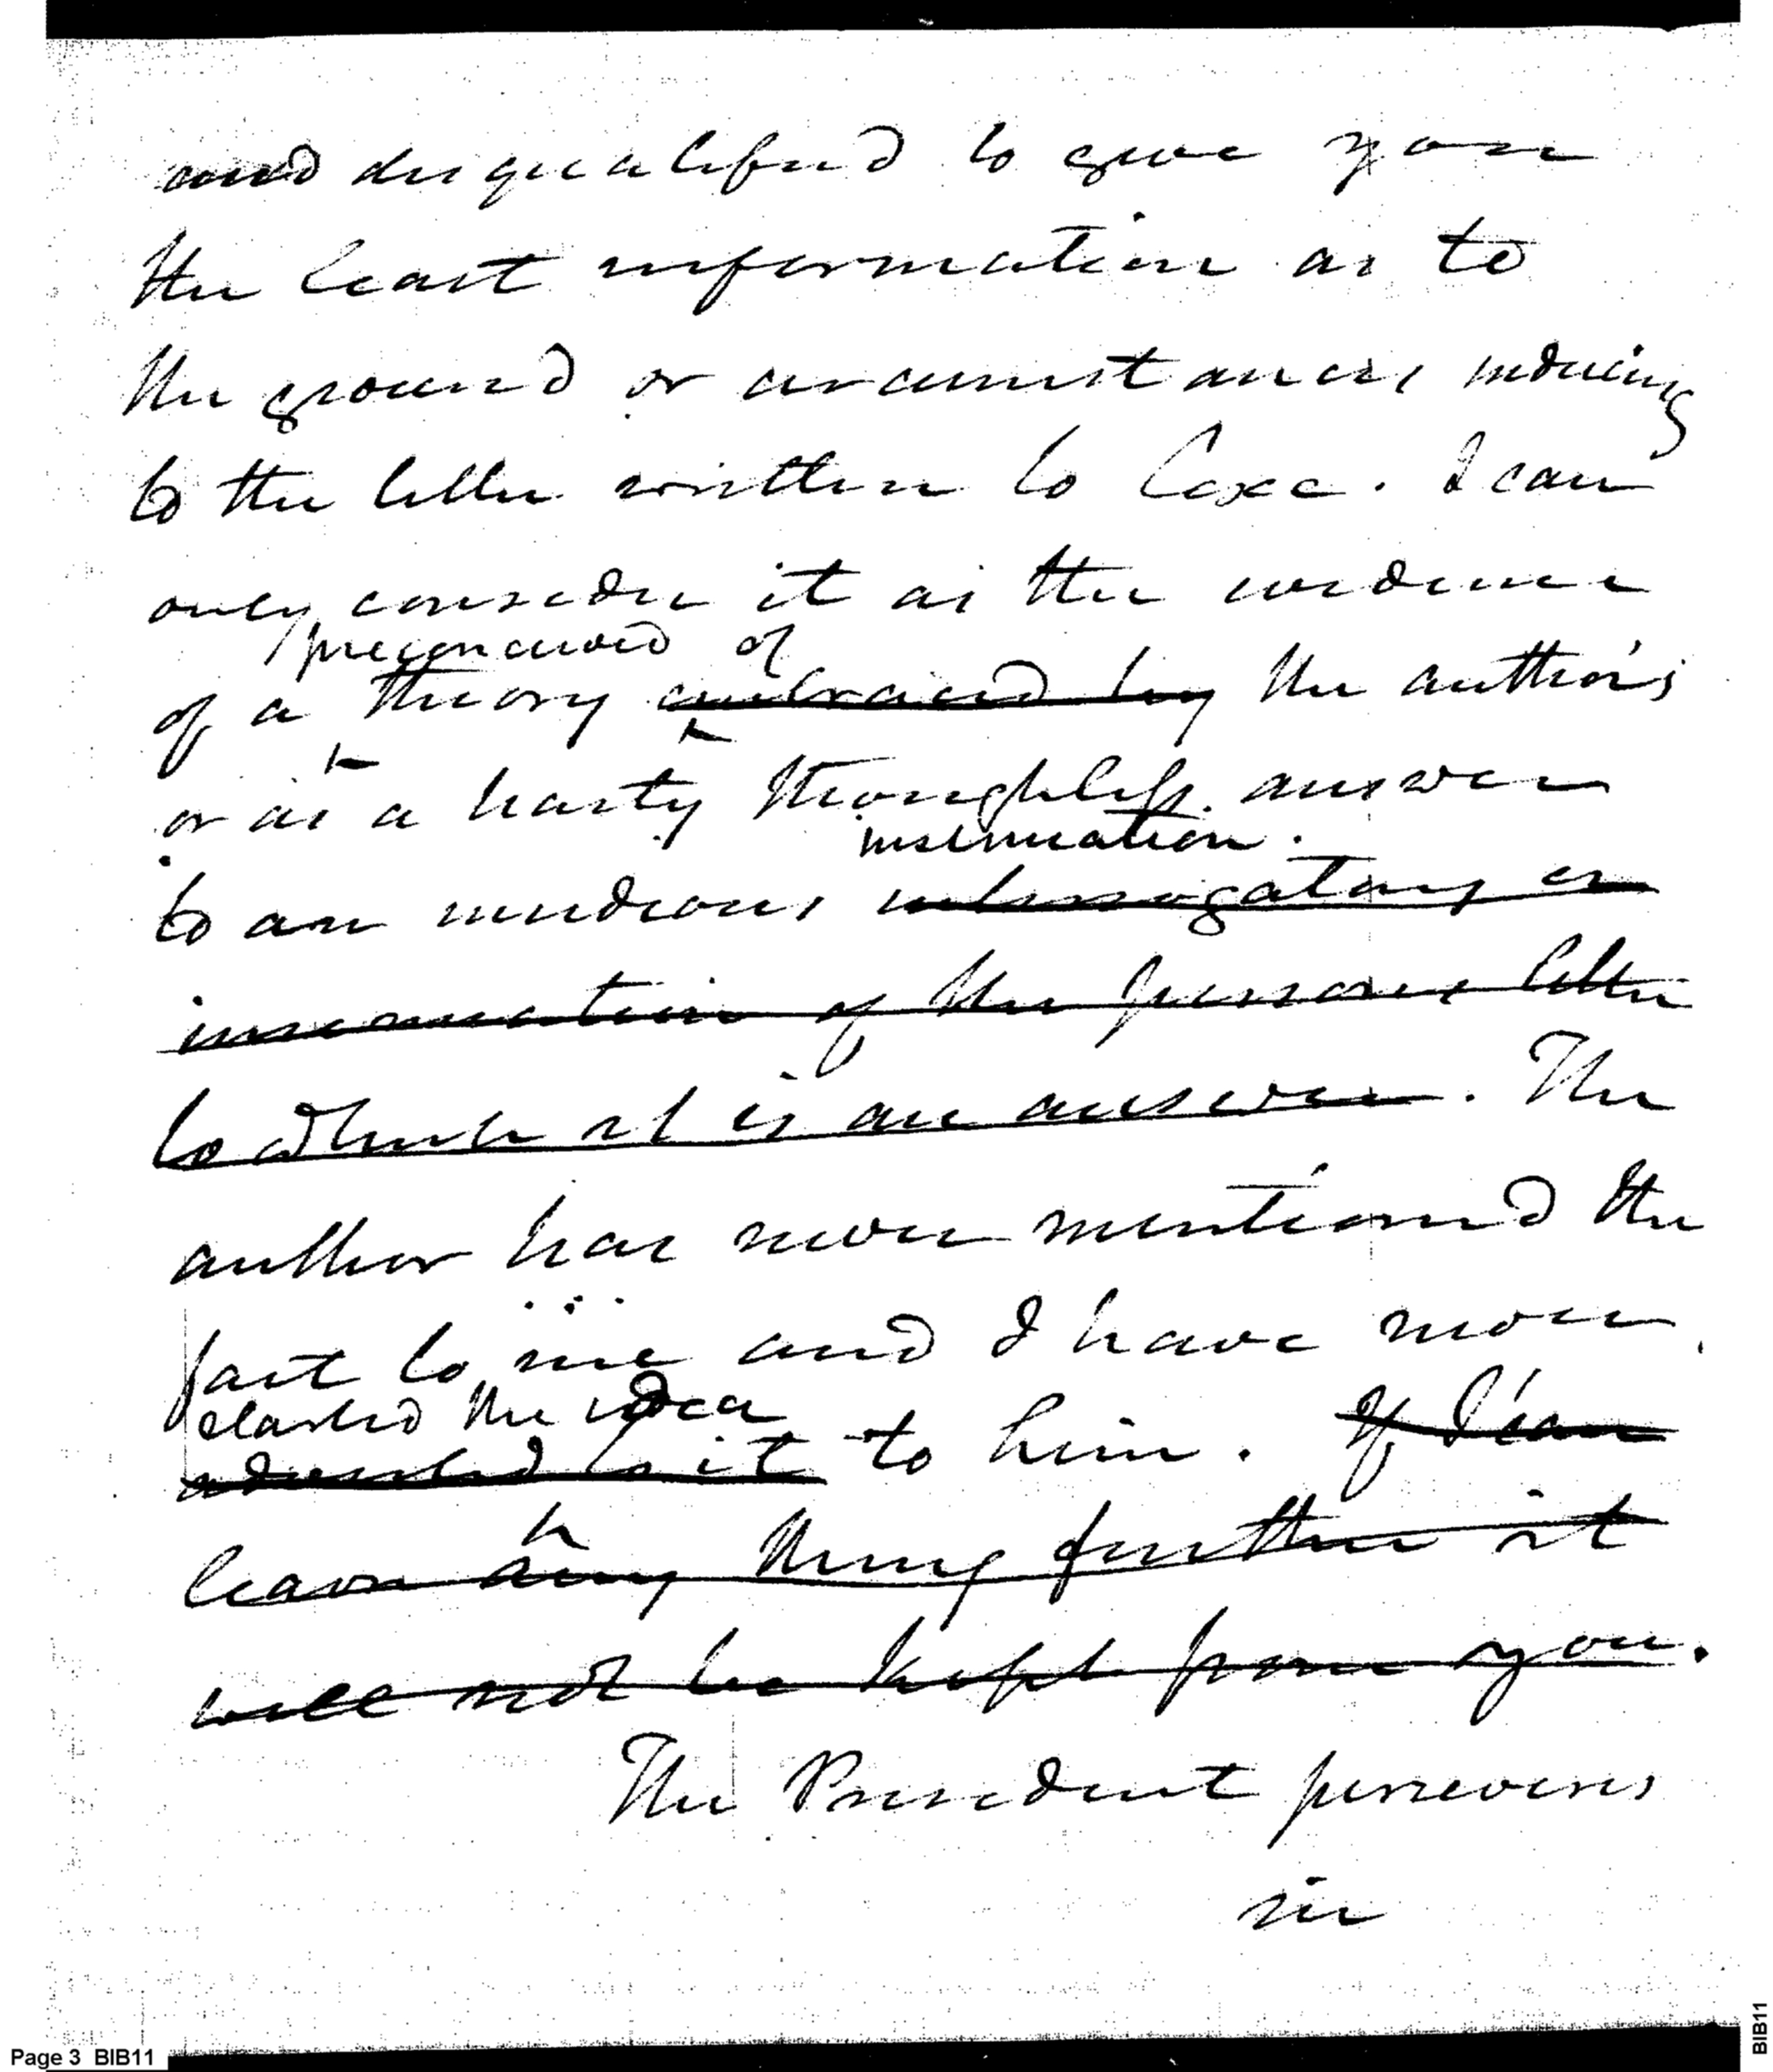 and disqualified to give you
the least information as to
the ground or circumstances inducing
to the letter written to Coxe. I can
only consider it as the evidence
preconceived of
of a theory embraced by the author's
or as a hasty thoughtless answer
insinuation.
to an invidious interrogatory or
insinuation of the persons letter
to which it is an answer. The
author has never mentioned the
fact to me and I have never
started the idea
adverted to it to him. If I can
learn any thing further it
will not be kept from you.
The President perseveres
in
Page 3 BIB11
BIB11